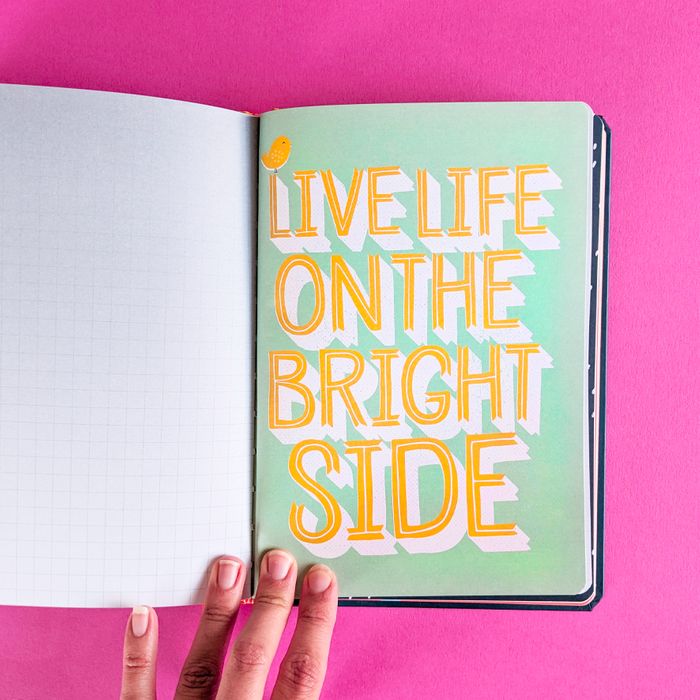 LIVE LIFE
ON THE
BRIGHT
SIDE